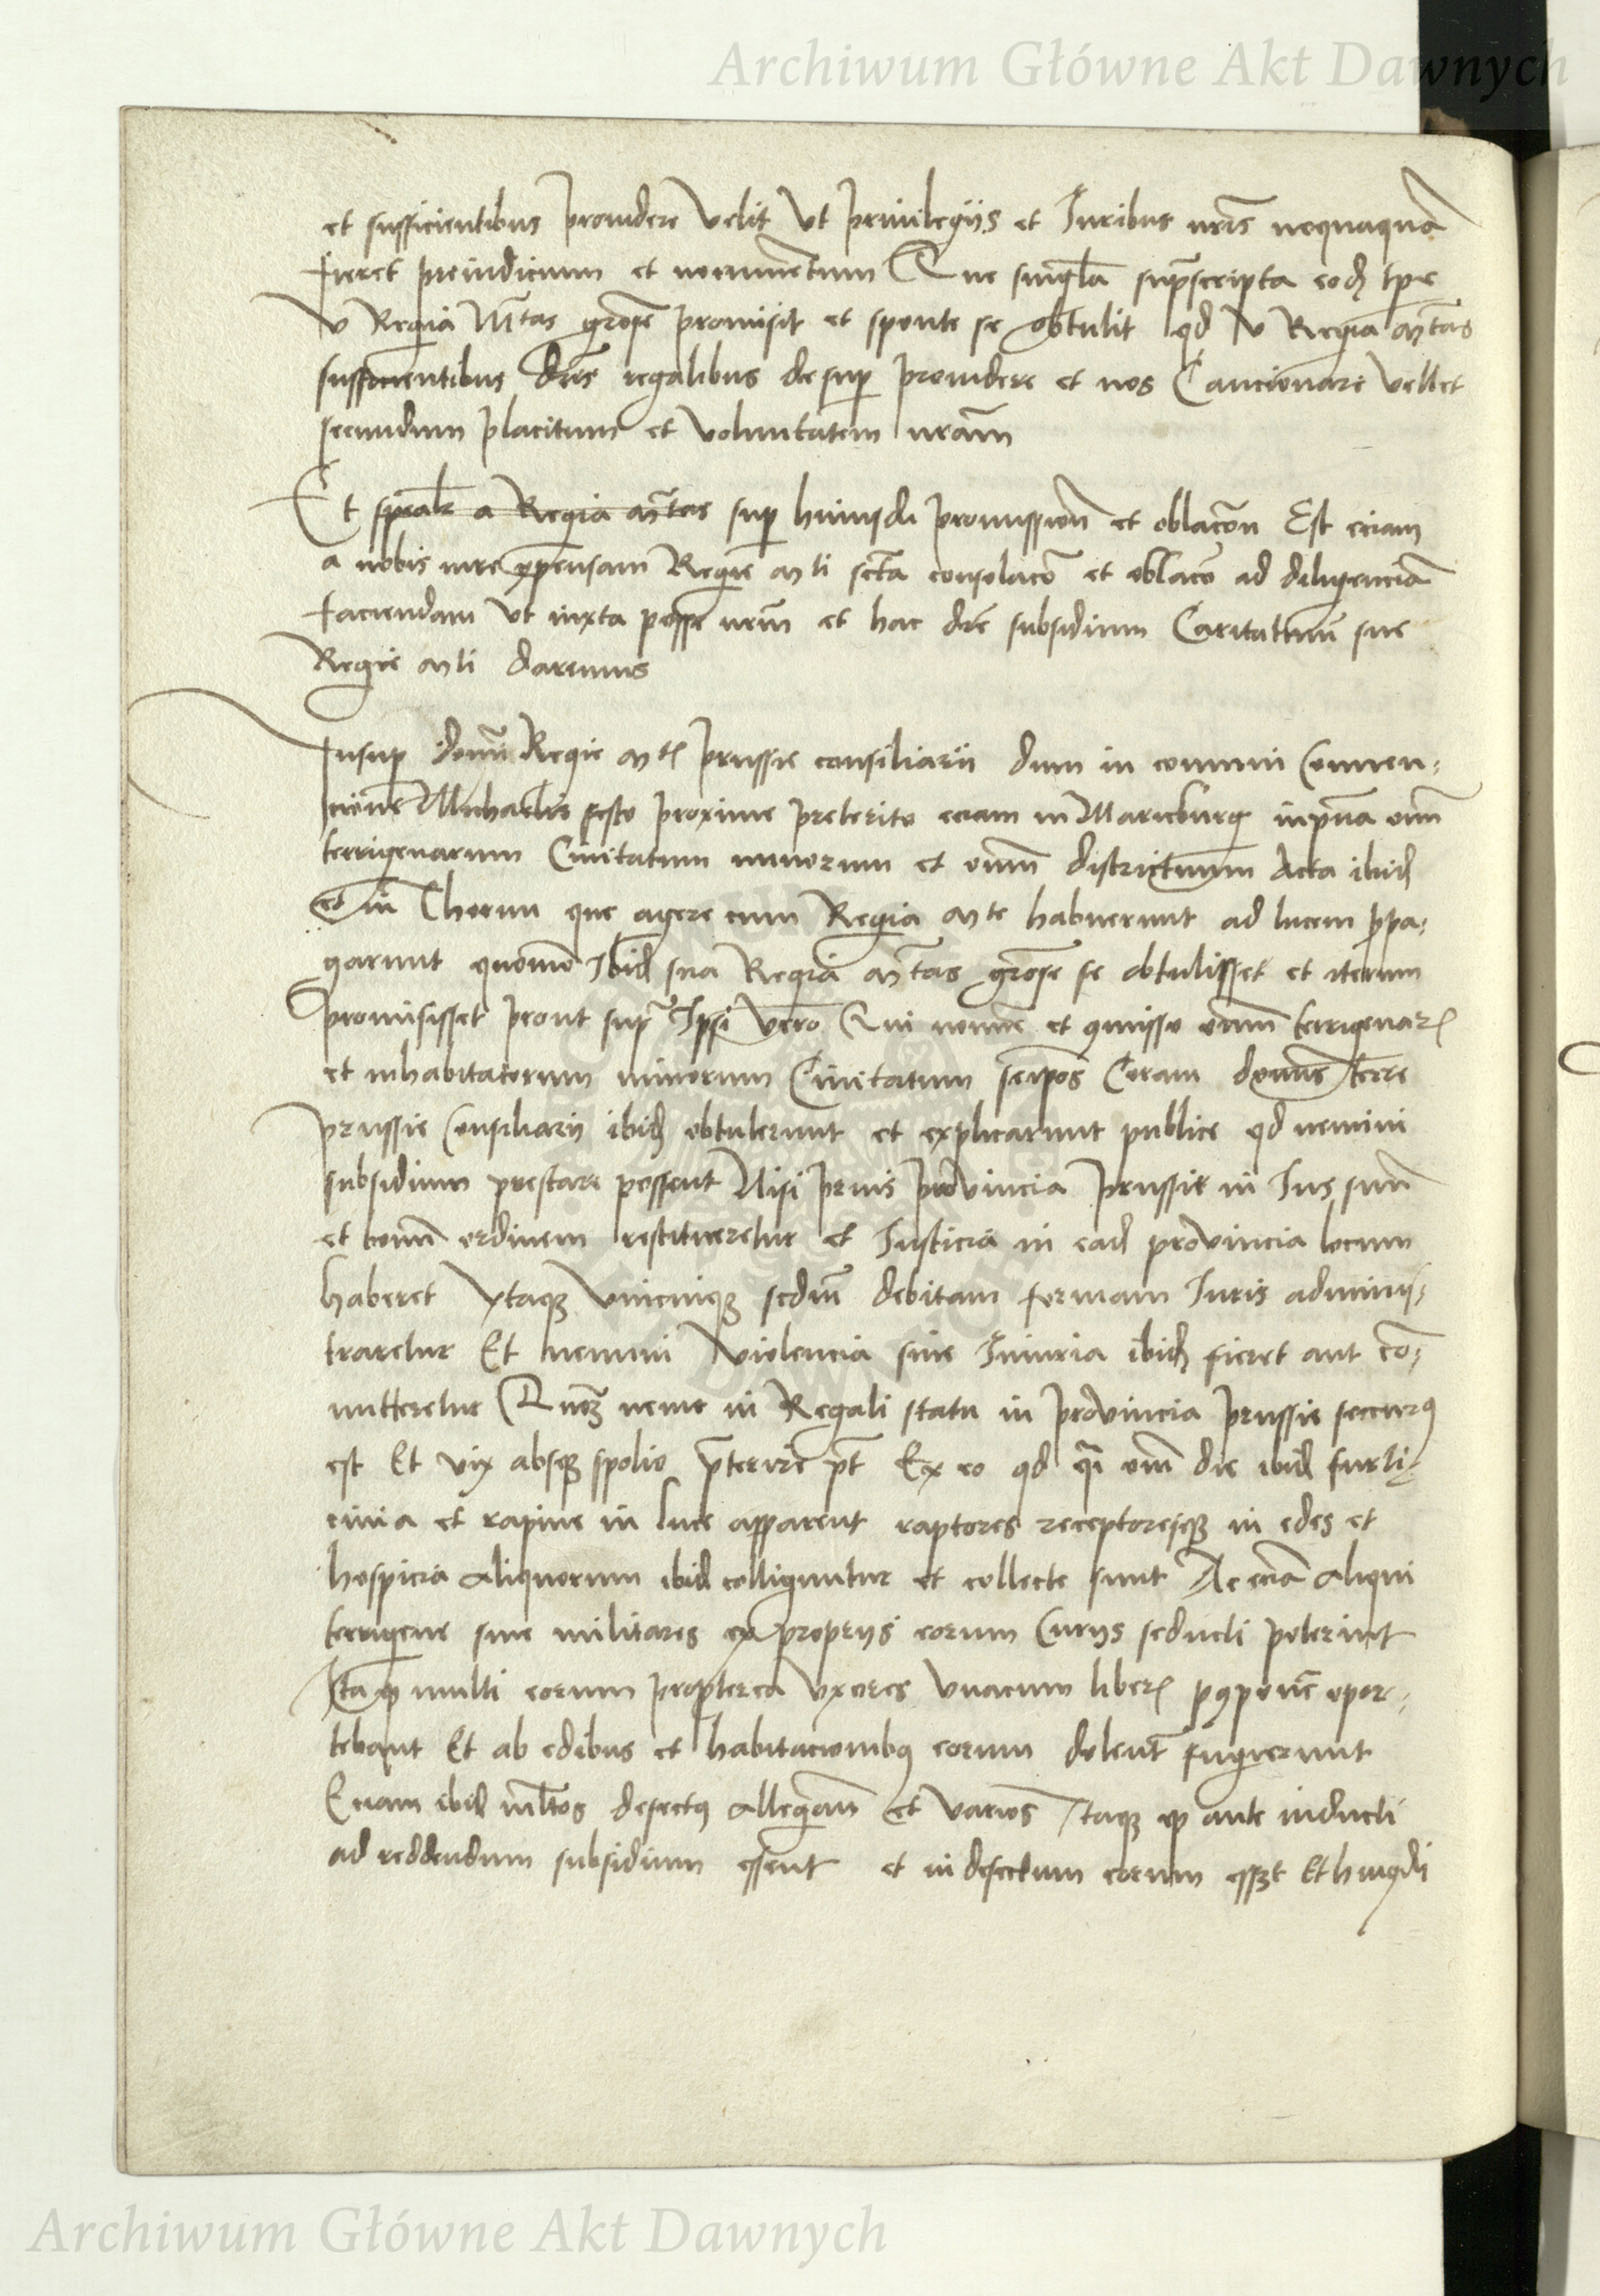 Archiwum Główne Akt Dawnych
et sufficientibus prouidere velit Vt priuilegijs et Juribus nris nequaquā
fieret preiudicium et nocumentum Que singla suprascripta eod tpe
V Regia Mtas grose promisit et sponte se obtulit qd V Regia Mtas
sufficientibus lris regalibus desup prouidere et nos Caucionare vellet
secundum placitum et voluntatem nram
Et a Regia Mtas sup huiusdi promission et oblacon Est eciam
a nobis Regie Mti fcta consolaco et oblaco ad diligenciā
faciendam Vt iuxta posse nrm et hac subsidium Caritatiuū sue
Regie Mti daremus
Insup domi Regie Mtis prussie consiliarii dum in commini Conuen-
cione Michaelis festo proxime preterito eciam in Marieburg inpñia oim
terrigenarum Ciuitatum minorum et oim districtuum Acta ibid
et in Thorun que agere cum Regia Mte habuerunt ad lucem ppa-
garunt quomo Ibid sua Regia Mtas grose se obtulisset et iterum
promisisset prout supra Ipsi vero Qui nomine et comisso oim terrigenar
et inhabitatorum minorum Ciuitatum seipos Coram dominis terre
prussie Consiliarij ibid obtulerunt et explicarunt publice qd nemini
subsidium prestare possent Nisi prius prouincia prussie in Jus suū
et bonū ordinem restitueretur et Justicia in ead prouincia locum
haberet Ytaq vnicuiq sedm debitam formam Juris adminis-
traretur Et nemini violencia siue Iniuria ibid fieret aut co-
mitteretur Quoz nemo in Regali statu in prouincia prussie securus
est Et vix absq spolio pterire pt Ex eo qd qi omi die ibid furti-
cinia et rapine in luce apparent raptores receptoresq in edes et
hospicia aliquorum ibid colliguntur et collecte sunt Ac eciā aliqui
terrigene siue militares ex proprijs eorum Curijs seducti
Itaq multi eorum propterea vxores vnacum liber opor-
tebant Et ab edibus et habitacionibus eorum dolent fugierunt
Quam ibid mltos defectus allegant et varios Itaq qp ante inducti
ad reddendum subsidium essent et in defectum eorum esset Et huiusdi
Archiwum Główne Akt Dawnych